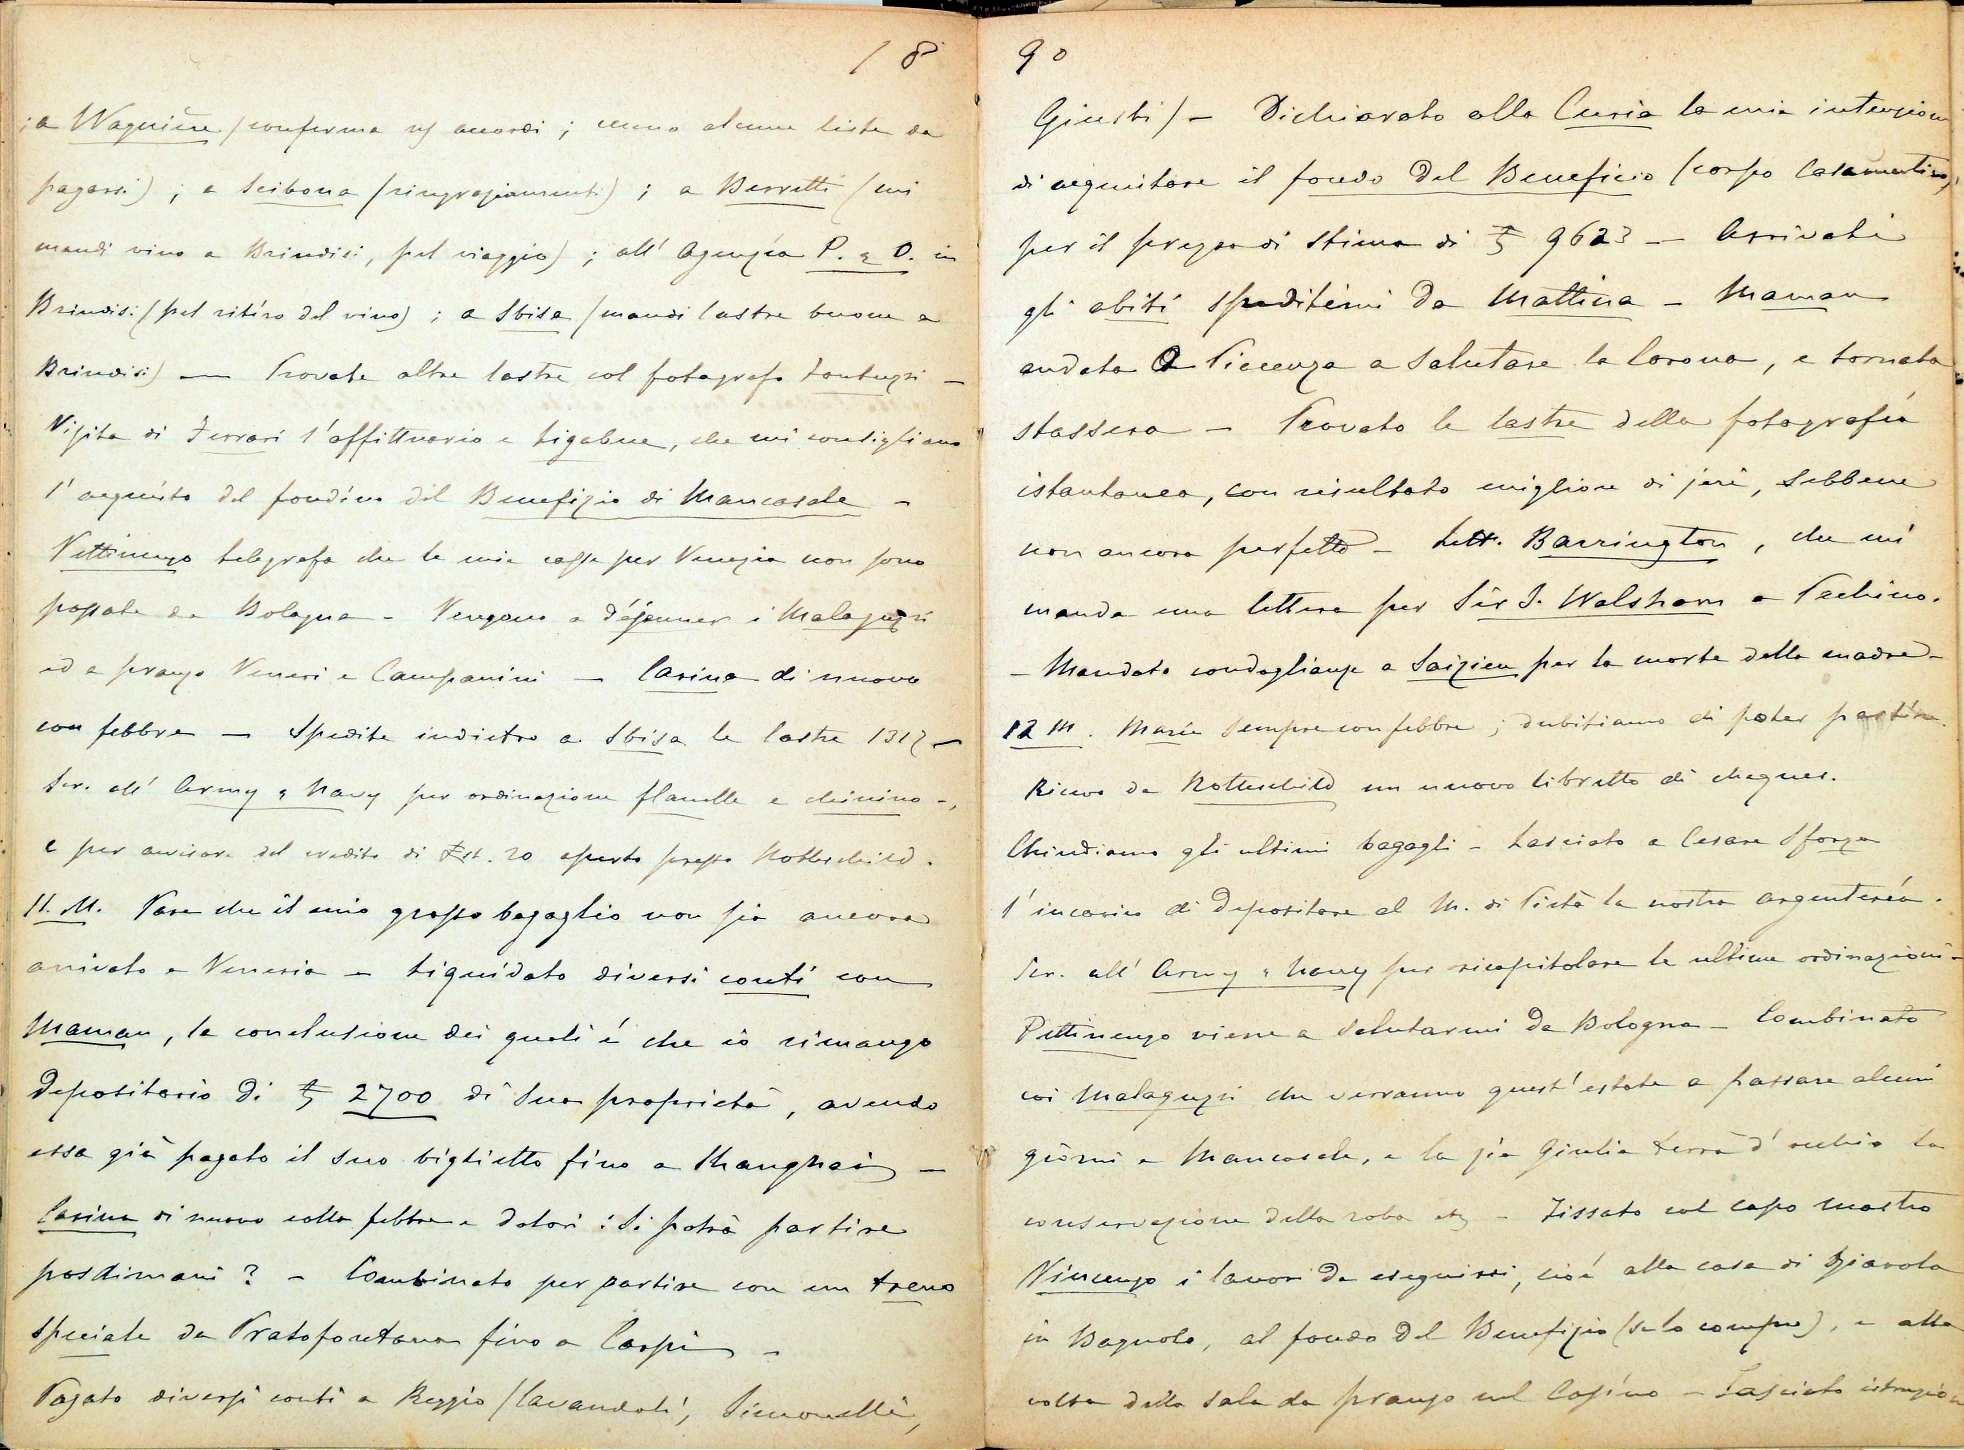 18
; a Wagnière (conferma ns/ accordi ; unino alcune liste da
pagarsi) ; a Scibona (ringraziamenti) ; a Berretti (mi
mandi vino a Brindisi, pel viaggio) ; all' Agenzia P. & O. in
Brindisi (pel ritiro del vino) ; a Sbisa (mandi lastre buone a
Brindisi) — Provate altre lastre col fotografo Fantuzzi —
Visita di Ferrari l'affittuario e Ligabue, che mi consigliano
l'acquisto del fondino del Benefizio di Mancasale —
Pettinengo telegrafa che le mie casse per Venezia non sono
passate da Bologna - Vengono a déjeuner i Malaguzzi
ed a pranzo Veneri e Campanini — Carina di nuovo
con febbre — Spedite indietro a Sbisa le lastre 13/17 —
Scr. all' Army & Navy per ordinazione flanelle e chinino -,
e per avvisare del credito di £st. 20 aperto presso Rothschild.
11. M. Pare che il mio grosso bagaglio non sia ancora
arrivato a Venezia — Liquidato diversi conti con
Maman, la conclusione dei quali é che io rimango
depositario di £ 2700 di sua proprietà, avendo
essa già pagato il suo biglietto fino a Shanghai —
Carina di nuovo colla febbre e dolori : Si potrà partire
posdimani ? — Combinato per partire con un treno
speciale da Pratofontana fino a Carpi —
Pagato diversi conti a Reggio (Lavandati, Simonelli,
90
Giusti) — Dichiarato alla Curia la mia intenzione
di acquistare il fondo del Beneficio (corpo Casamentivo)
per il prezzo di stima di £ 9623 — Arrivati
gli abiti speditimi da Mattina — Maman
andata a Vicenza a salutare la Corona, e tornata
stassera — Provato le lastre della fotografia
istantanea, con risultato migliore di jeri, sebbene
non ancora perfetto — Lett. Barrington, che mi
manda una lettera per Sir J. Walsham a Pechino.
— Mandato condoglianze a Saizieu per la morte della madre —
12 M. Marie sempre con febbre ; dubitiamo di poter partire.
Ricevo da Rothschild un nuovo libretto di cheques.
Chiudiamo gli ultimi bagagli — Lasciato a Cesare Sforza
l'incarico di depositare al M. di Pietà la nostra argenteria.
Scr. all' Army & Navy per ricapitolare le ultime ordinazioni —
Pettinengo viene a salutarmi da Bologna — Combinato
coi Malaguzzi che verranno quest'estate a passare alcuni
giorni a Mancasale, e la zia Giulia terrà d'occhio la
conservazione della roba etc — Fissato col capo mastro
Vincenzo i lavori da eseguirsi, cioé alla casa di Spiarola
in Bagnolo, al fondo del Benefizio (se lo compro), e alla
volta della sala da pranzo nel Casino — Lasciato istruzioni